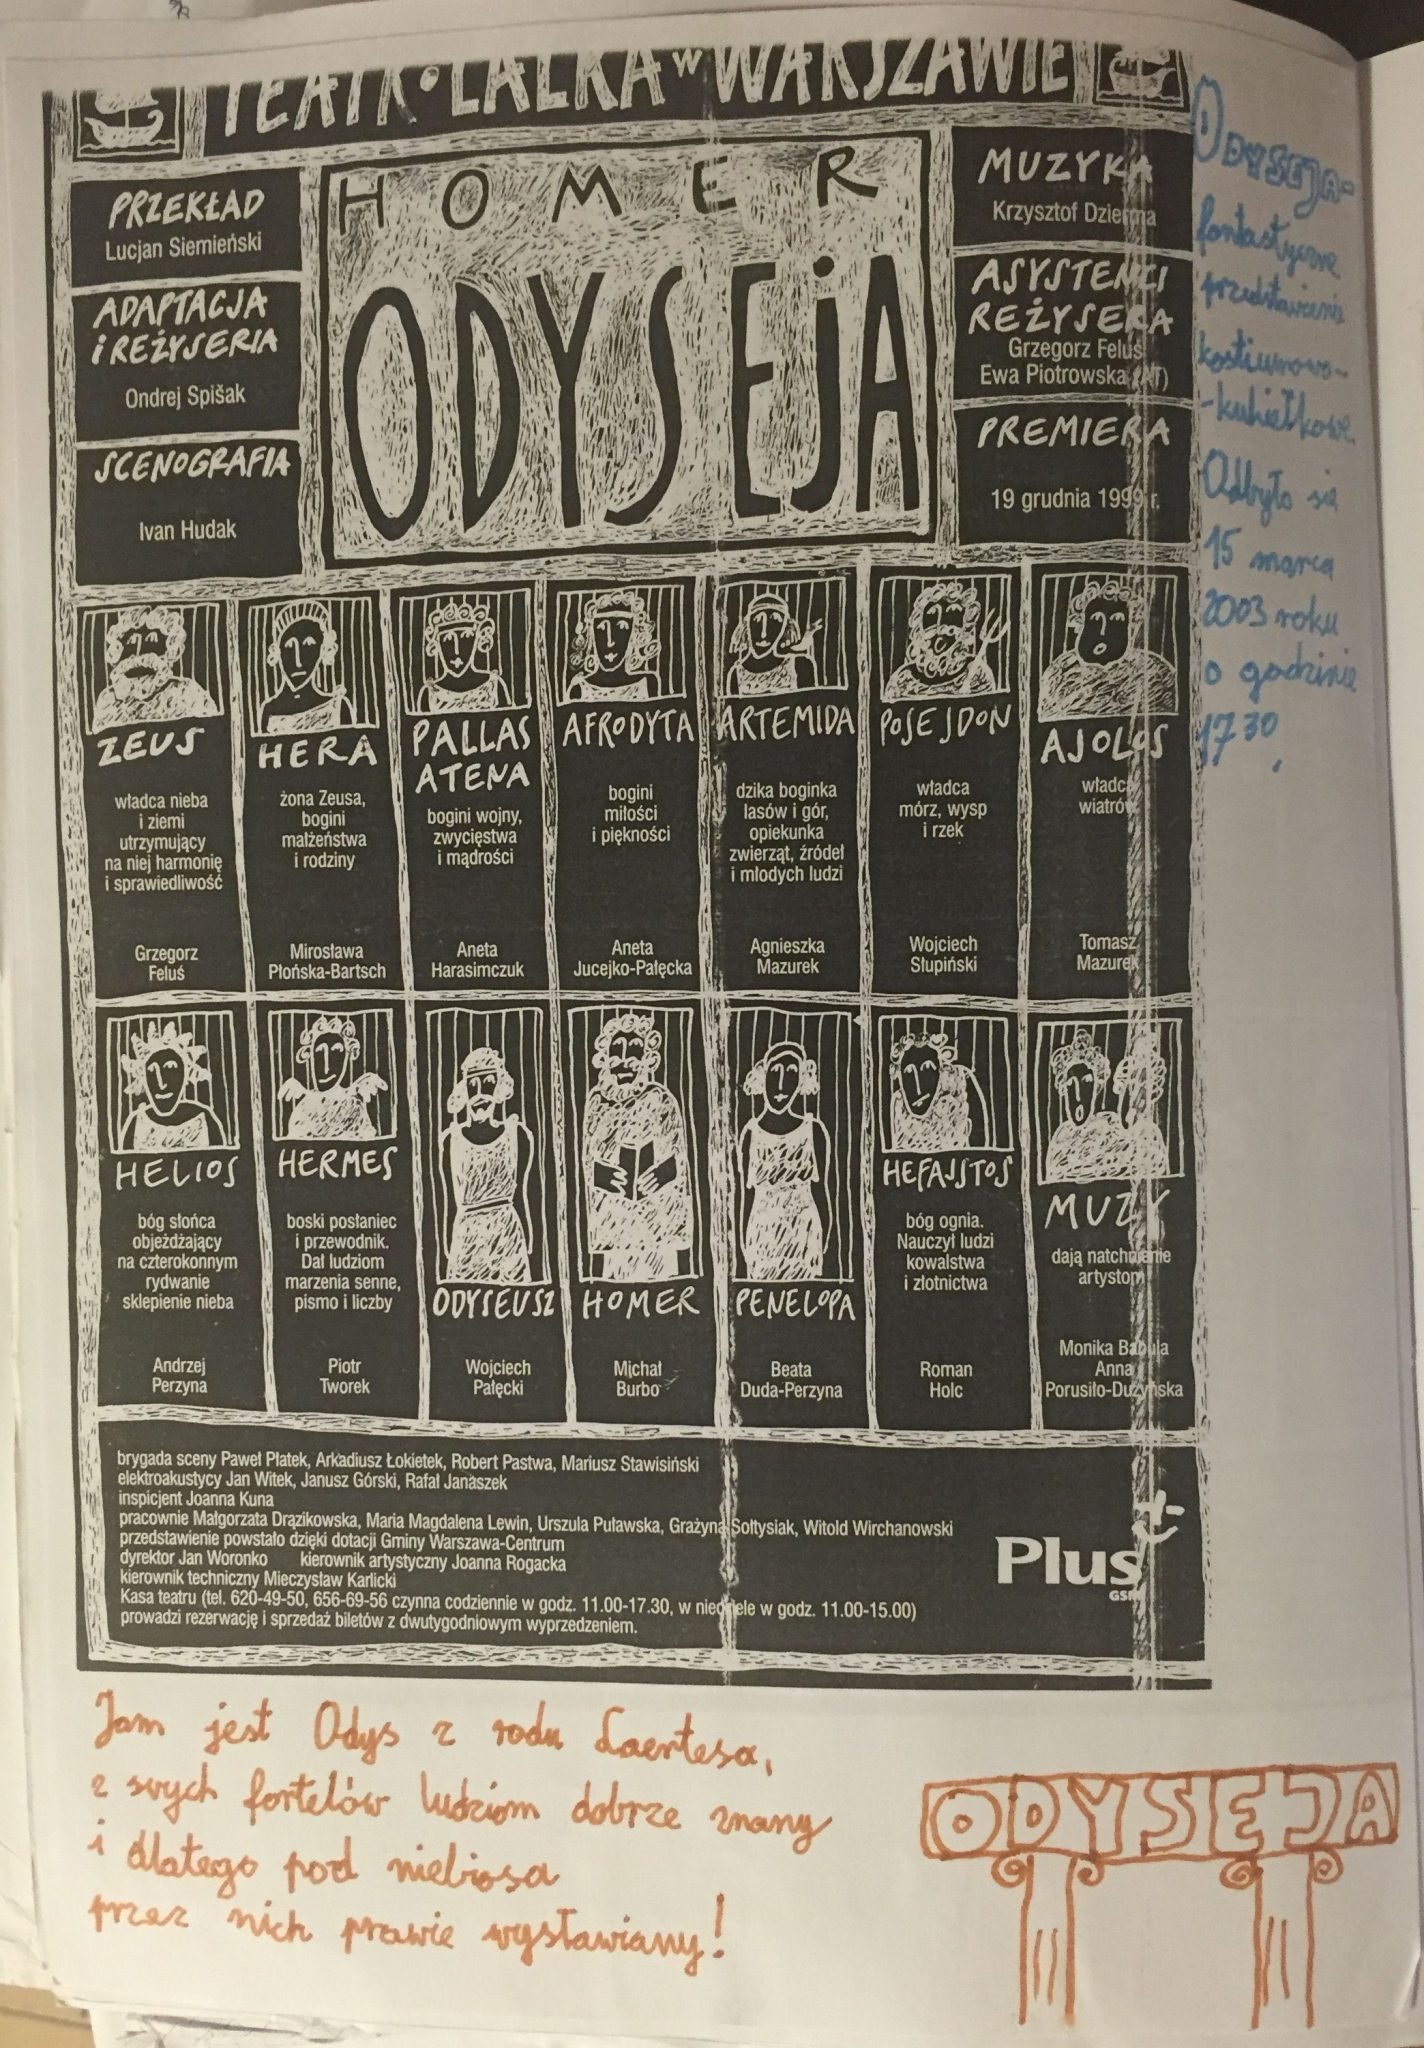 TEATR • LALKA W WARSZAWIE
PRZEKŁAD
Lucjan Siemieński
ADAPTACJA
i REŻYSERIA
Ondrej Spišak
SCENOGRAFIA
Ivan Hudak
HOMER
ODYSEJA
MUZYKA
Krzysztof Dzierma
ASYSTENCI
REŻYSERA
Grzegorz Feluś
Ewa Piotrowska (AT)
PREMIERA
19 grudnia 1999 r.
ODYSEJA-
fantastyczne
przedstawienie
kostiumowo-
-kukiełkowe.
Odbyło się
15 marca
2003 roku
o godzinie
17 30.
ZEUS
władca nieba
i ziemi
utrzymujący
na niej harmonię
i sprawiedliwość
Grzegorz
Feluś
HERA
żona Zeusa,
bogini
małżeństwa
i rodziny
Mirosława
Płońska-Bartsch
PALLAS
ATENA
bogini wojny,
zwycięstwa
i mądrości
Aneta
Harasimczuk
AFRODYTA
bogini
miłości
i piękności
Aneta
Jucejko-Pałęcka
ARTEMIDA
dzika boginka
lasów i gór,
opiekunka
zwierząt, źródeł
i młodych ludzi
Agnieszka
Mazurek
POSEJDON
władca
mórz, wysp
i rzek
Wojciech
Słupiński
AJOLOS
władca
wiatrów
Tomasz
Mazurek
HELIOS
bóg słońca
objeżdżający
na czterokonnym
rydwanie
sklepienie nieba
Andrzej
Perzyna
HERMES
boski posłaniec
i przewodnik.
Dał ludziom
marzenia senne,
pismo i liczby
Piotr
Tworek
ODYSEUSZ
Wojciech
Pałęcki
HOMER
Michał
Burbo
PENELOPA
Beata
Duda-Perzyna
HEFAJSTOS
bóg ognia.
Nauczył ludzi
kowalstwa
i złotnictwa
Roman
Holc
MUZY
dają natchnienie
artystom
Monika Babula
Anna
Porusiło-Dużyńska
brygada sceny Paweł Płatek, Arkadiusz Łokietek, Robert Pastwa, Mariusz Stawisiński
elektroakustycy Jan Witek, Janusz Górski, Rafał Janaszek
inspicjent Joanna Kuna
pracownie Małgorzata Drązikowska, Maria Magdalena Lewin, Urszula Puławska, Grażyna Sołtysiak, Witold Wirchanowski
przedstawienie powstało dzięki dotacji Gminy Warszawa-Centrum
dyrektor Jan Woronko kierownik artystyczny Joanna Rogacka
kierownik techniczny Mieczysław Karlicki
Kasa teatru (tel. 620-49-50, 656-69-56 czynna codziennie w godz. 11.00-17.30, w niedziele w godz. 11.00-15.00)
prowadzi rezerwację i sprzedaż biletów z dwutygodniowym wyprzedzeniem.
Plus
GSM
Jam jest Odys z rodu Laertesa,
z swych fortelów ludziom dobrze znany
i dlatego pod niebiosa
przez nich prawie wystawiany!
ODYSEJA